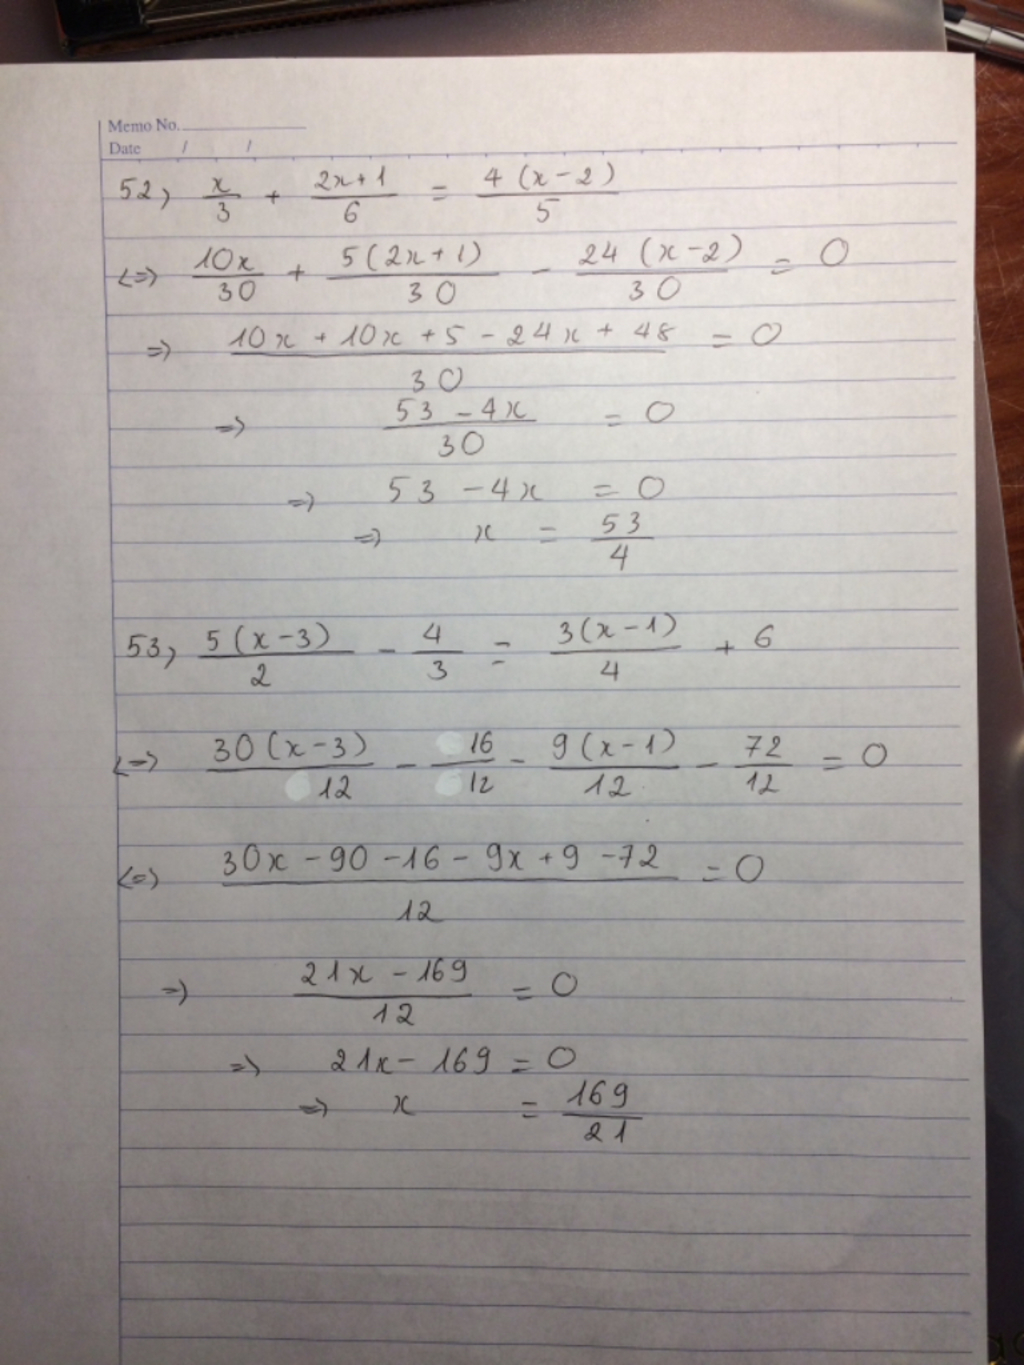 Memo No.
Date / /
52) x/3 + (2x+1)/6 = 4(x-2)/5
<=> 10x/30 + 5(2x+1)/30 - 24(x-2)/30 = 0
=> (10x + 10x + 5 - 24x + 48)/30 = 0
=> (53 - 4x)/30 = 0
=> 53 - 4x = 0
=> x = 53/4
53) 5(x-3)/2 - 4/3 = 3(x-1)/4 + 6
<=> 30(x-3)/12 - 16/12 - 9(x-1)/12 - 72/12 = 0
<=> (30x - 90 - 16 - 9x + 9 - 72)/12 = 0
=> (21x - 169)/12 = 0
=> 21x - 169 = 0
=> x = 169/21